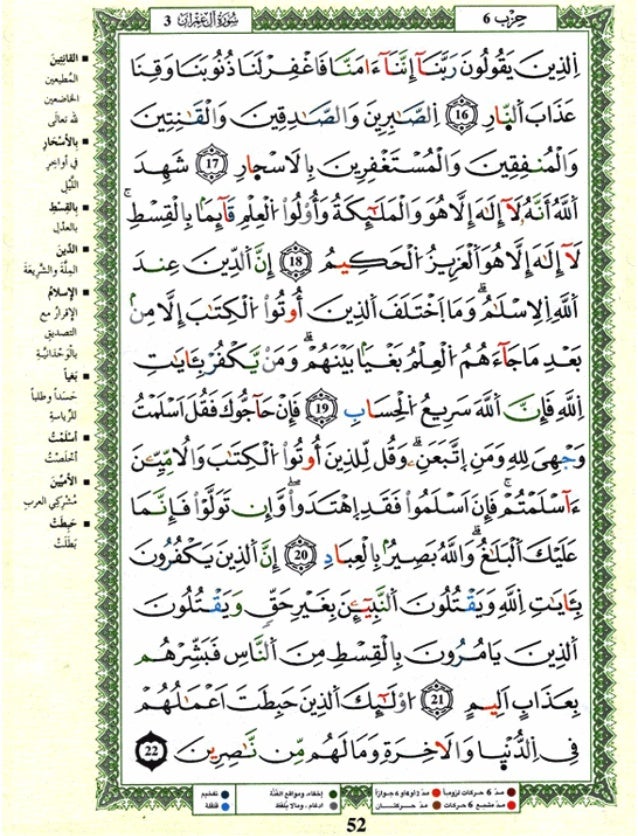 3 سُورَةُ آلِ عِمْرَان
حِزْب 6
اِ۬لذِينَ يَقُولُونَ رَبَّنَآ إِنَّنَآ ءَامَنَّا فَاغْفِرْ لَنَا ذُنُوبَنَا وَقِنَا
عَذَابَ اَ۬لنَّارِ 16 اِ۬لصَّٰبِرِينَ وَالصَّٰدِقِينَ وَالْقَٰنِتِينَ
وَالْمُنفِقِينَ وَالْمُسْتَغْفِرِينَ بِالَاسْحارِ 17 شَهِدَ
اَ۬للَّهُ أَنَّهُۥ لَآ إِلَٰهَ إِلَّا هُوَ وَالْمَلَٰٓئِكَةُ وَأُوْلُواْ اُ۬لْعِلْمِ قَآئِماَۢ بِالْقِسْطِۖ
لَآ إِلَٰهَ إِلَّا هُوَ اَ۬لْعَزِيزُ اُ۬لْحَكِيمُ 18 إِنَّ اَ۬لدِّينَ عِندَ
اَ۬للَّهِ اِ۬لِاسْلَٰمُۖ وَمَا اَ۪خْتَلَفَ اَ۬لذِينَ أُوتُواْ اُ۬لْكِتَٰبَ إِلَّا مِنۢ
بَعْدِ مَا جَآءَهُمُ اُ۬لْعِلْمُ بَغْياَۢ بَيْنَهُمْۖ وَمَنْ يَّكْفُرْ بِـَٔايَٰتِ
اِ۬للَّهِ فَإِنَّ اَ۬للَّهَ سَرِيعُ اُ۬لْحِسَابِ 19 فَإِنْ حَآجُّوكَ فَقُلَ اَسْلَمْتُ
وَجْهِىَ لِلهِ وَمَنِ اِ۪تَّبَعَنِۦۖ وَقُل لِّلذِينَ أُوتُواْ اُ۬لْكِتَٰبَ وَالُامِّيِّـۧنَ
ءَآسْلَمْتُمْۖ فَإِنَ اَسْلَمُواْ فَقَدِ اِ۪هْتَدَواْۖ وَّإِن تَوَلَّوْاْ فَإِنَّمَا
عَلَيْكَ اَ۬لْبَلَٰغُۖ وَاللَّهُ بَصِيرُۢ بِالْعِبَادِ 20 إِنَّ اَ۬لذِينَ يَكْفُرُونَ
بِـَٔايَٰتِ اِ۬للَّهِ وَيَقْتُلُونَ اَ۬لنَّبِيٓـِٕۧنَ بِغَيْرِ حَقٍّ وَيَقْتُلُونَ
اَ۬لذِينَ يَامُرُونَ بِالْقِسْطِ مِنَ اَ۬لنَّاسِ فَبَشِّرْهُم
بِعَذَابٍ اَلِيمٍ 21 اُوْلَٰٓئِكَ اَ۬لذِينَ حَبِطَتَ اَعْمَٰلُهُمْ
فِى اِ۬لدُّنْي۪ا وَالَاخِرَةِ وَمَا لَهُم مِّن نَّٰصِرِينَ 22
■ القانِتِينَ
المُطيعين
الخاضعين
لله تعالى
■ بالأسْحَارِ
في أواخِرِ
اللَّيْلِ
■ بِالقِسْطِ
بالعدْلِ
■ الدِّينَ
المِلَّةَ والشَّرِيعَةَ
■ الإسلامُ
الإقرارُ مع
التصديقِ
بالوَحْدَانيَّةِ
■ بَغياً
حَسَداً وطلباً
للرِّياسةِ
■ أسْلَمْتُ
أخلَصْتُ
■ الأُمِّيِّينَ
مُشركِي العرب
■ حَبِطَتْ
بَطَلَتْ
مدّ 6 حركات لزوماً
مدّ 2 أو 4 أو 6 جوازاً
إخفاء، ومواقع الغُنَّة
تفخيم
مدّ مشبع 6 حركات
مدّ حركتان
إدغام، وما لا يُلفظ
قلقلة
52